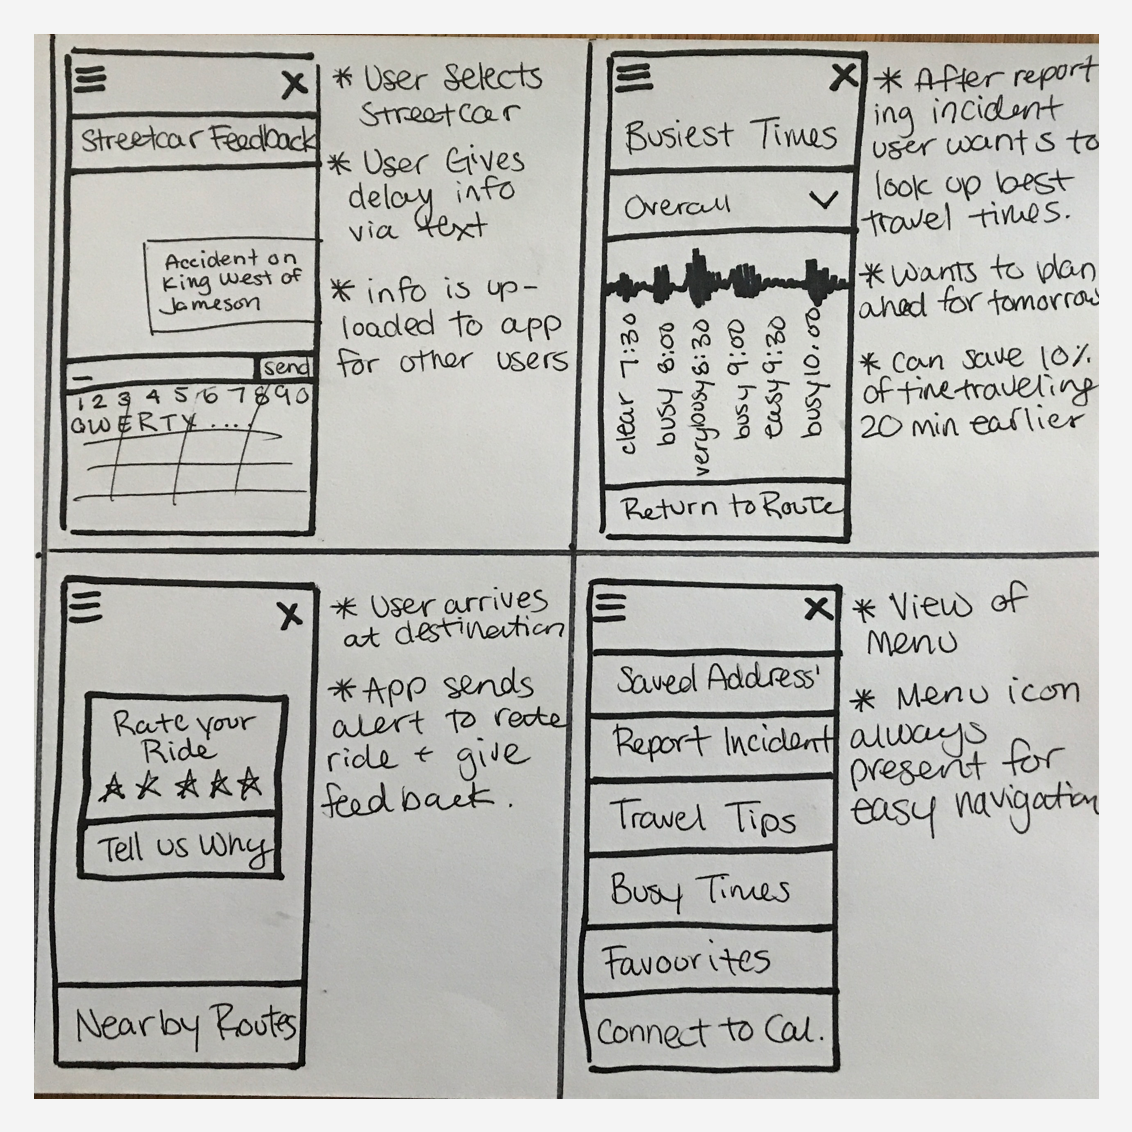 X
Streetcar Feedback
Accident on
King West of
Jameson
send
1 2 3 4 5 6 7 8 9 0
QWERTY....
* User Selects
Streetcar
* User Gives
delay info
via text
* info is up-
loaded to app
for other users
X
Busiest Times
Overall
clear 7:30
busy 8:00
very busy 8:30
busy 9:00
easy 9:30
busy 10:00
Return to Route
* After report
ing incident
user wants to
look up best
travel times.
* Wants to plan
ahed for tomorrow
* Can save 10%
of time traveling
20 min earlier
X
Rate your
Ride
Tell us Why
Nearby Routes
* User arrives
at destination
* App sends
alert to rate
ride + give
feedback.
X
Saved Address'
Report Incident
Travel Tips
Busy Times
Favourites
Connect to Cal.
* View of
Menu
* Menu icon
always
present for
easy navigation